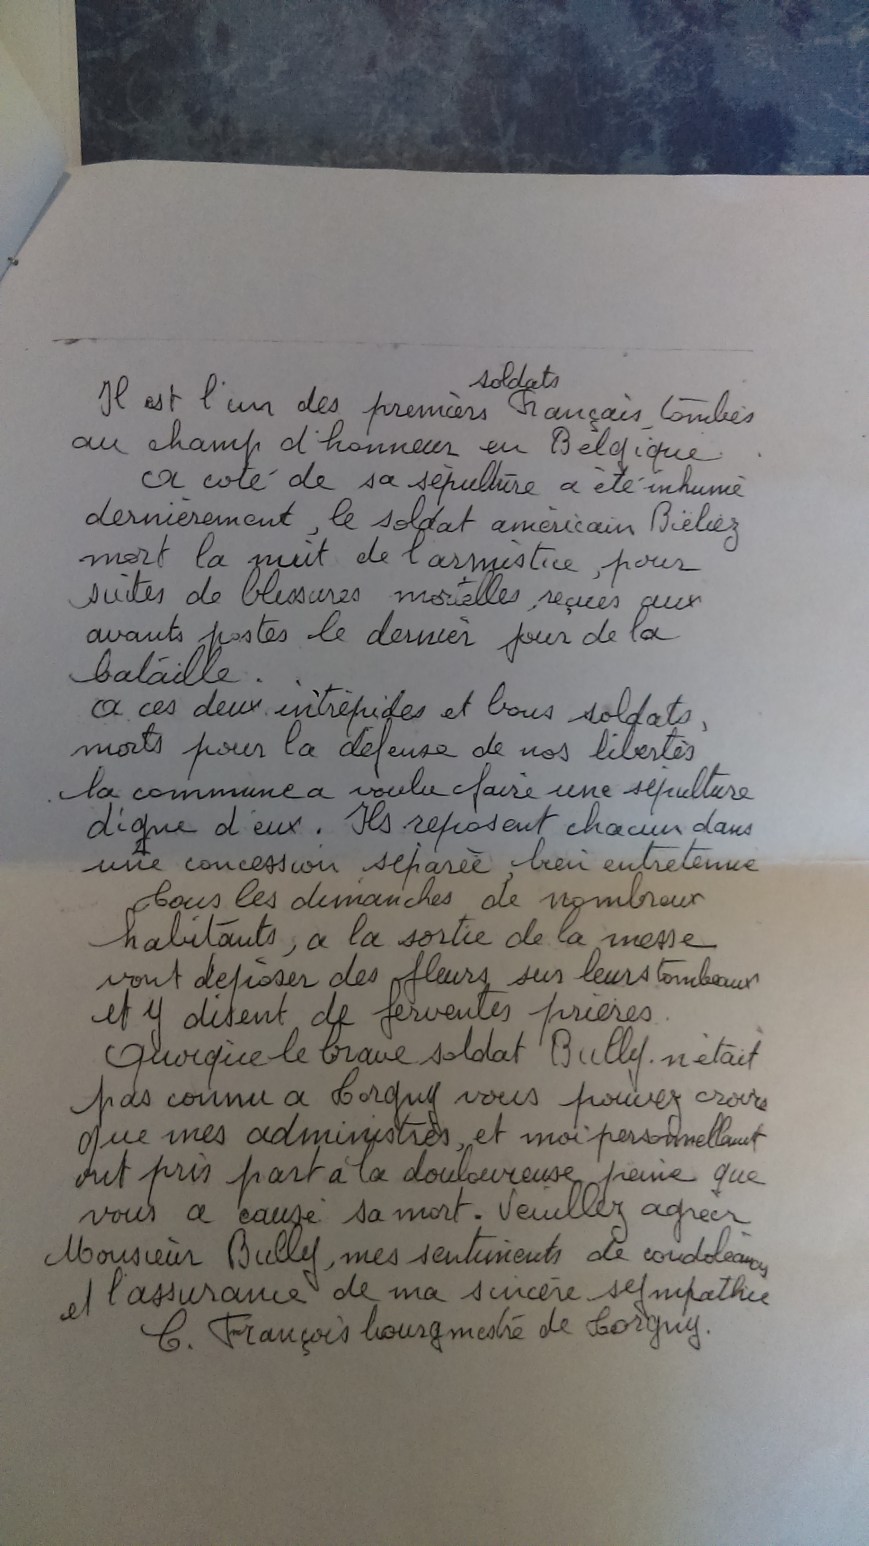 Il est l'un des premiers soldats Français tombés
au champ d'honneur en Belgique.
A coté de sa sépulture a été inhumé
dernièrement, le soldat américain Bieliez
mort la nuit de l'armistice, pour
suites de blessures mortelles, reçues aux
avants postes le dernier jour de la
bataille.
A ces deux intrépides et bons soldats,
morts pour la défense de nos libertés
la commune a voulu faire une sépulture
digne d'eux. Ils reposent chacun dans
une concession séparée, bien entretenue
Tous les dimanches de nombreux
habitants, a la sortie de la messe
vont déposer des fleurs sur leurs tombeaux
et y disent de ferventes prières.
Quoique le brave soldat Bully n'était
pas connu a Torgny vous pouvez croire
que mes administrés, et moi personnellement
ont pris part à la douloureuse peine que
vous a causé sa mort. Veuillez agréer
Monsieur Bully, mes sentiments de condoléances
et l'assurance de ma sincère sympathie
C. François bourgmestre de Torgny.